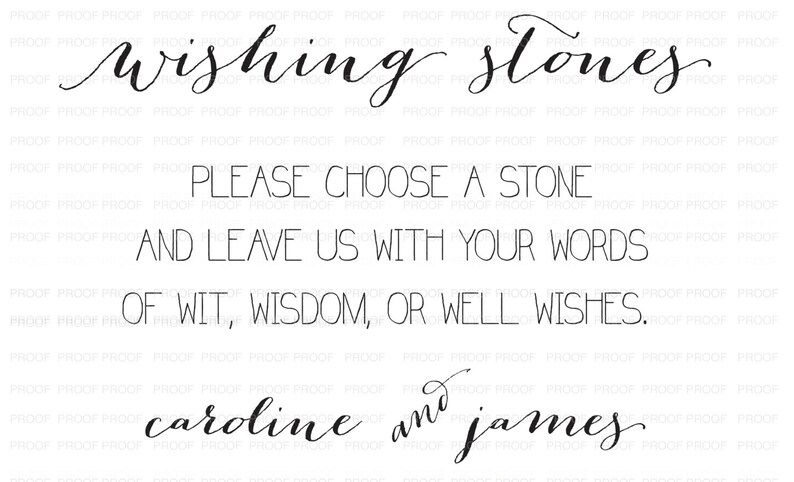 wishing stones
PLEASE CHOOSE A STONE
AND LEAVE US WITH YOUR WORDS
OF WIT, WISDOM, OR WELL WISHES.
caroline and james
PROOF